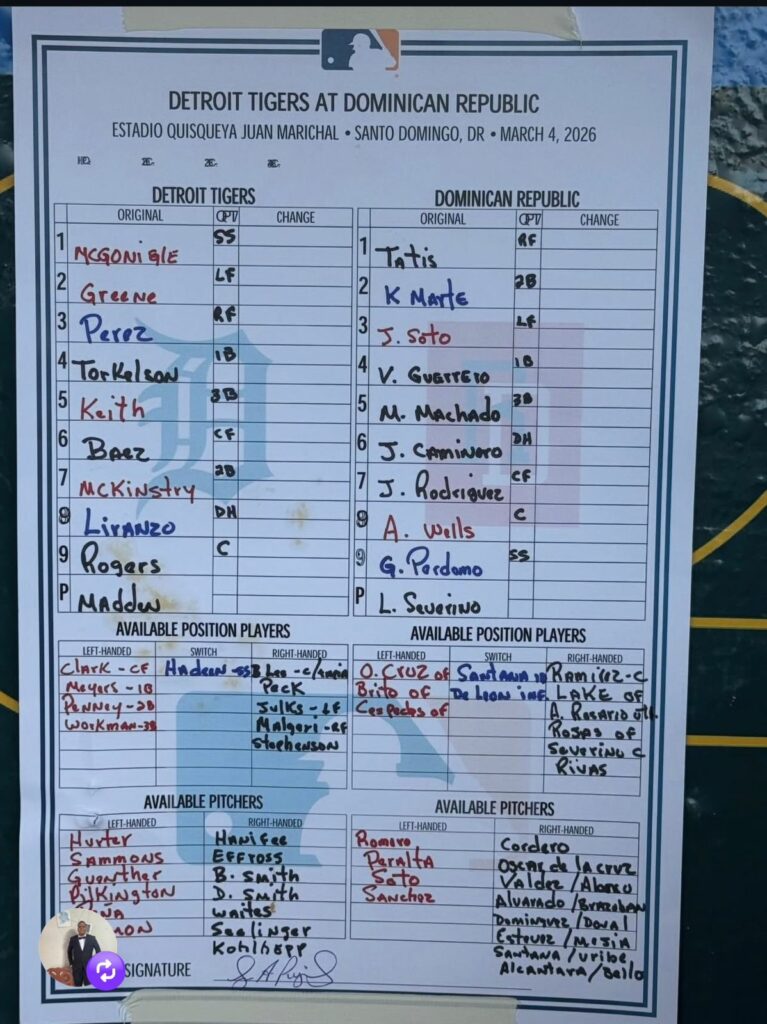 DETROIT TIGERS AT DOMINICAN REPUBLIC
ESTADIO QUISQUEYA JUAN MARICHAL • SANTO DOMINGO, DR • MARCH 4, 2026
DETROIT TIGERS
ORIGINAL CHANGE
1 McGONIGLE SS
2 Greene LF
3 Perez RF
4 Torkelson 1B
5 Keith 3B
6 Baez CF
7 McKinstry 2B
Liranzo DH
9 Rogers C
P MADDEN
DOMINICAN REPUBLIC
ORIGINAL CHANGE
1 Tatis RF
2 K Marte 2B
3 J. Soto LF
4 V. Guerrero 1B
5 M. Machado 3B
6 J. Caminero DH
7 J. Rodriguez CF
A. Wells C
9 G. Perdomo SS
P L. Severino
AVAILABLE POSITION PLAYERS
LEFT-HANDED SWITCH RIGHT-HANDED
Clark - CF
Meyers - 1B
Penney - 2B
Workman - 3B
Peck
Julks - LF
Malgeri - RF
Stephenson
AVAILABLE POSITION PLAYERS
LEFT-HANDED SWITCH RIGHT-HANDED
O. Cruz of Santana 1B Ramirez - C
Brito of De Leon inf LAKE OF
Cespedes of A. Rosario
Rojas OF
Severino C
Rivas
AVAILABLE PITCHERS
LEFT-HANDED RIGHT-HANDED
Hurter Hanifee
SAMMONS EFFROSS
Guenther B. Smith
Pilkington D. Smith
Waites
Seelinger
Kohlhepp
AVAILABLE PITCHERS
LEFT-HANDED RIGHT-HANDED
Romero Cordero
Peralta Oscar de la cruz
Soto Valdez / Alonso
Sanchez Alvarado / Brazoban
Dominguez / Doval
Estevez / Mejia
Santana / Uribe
Alcantara / Bello
SIGNATURE